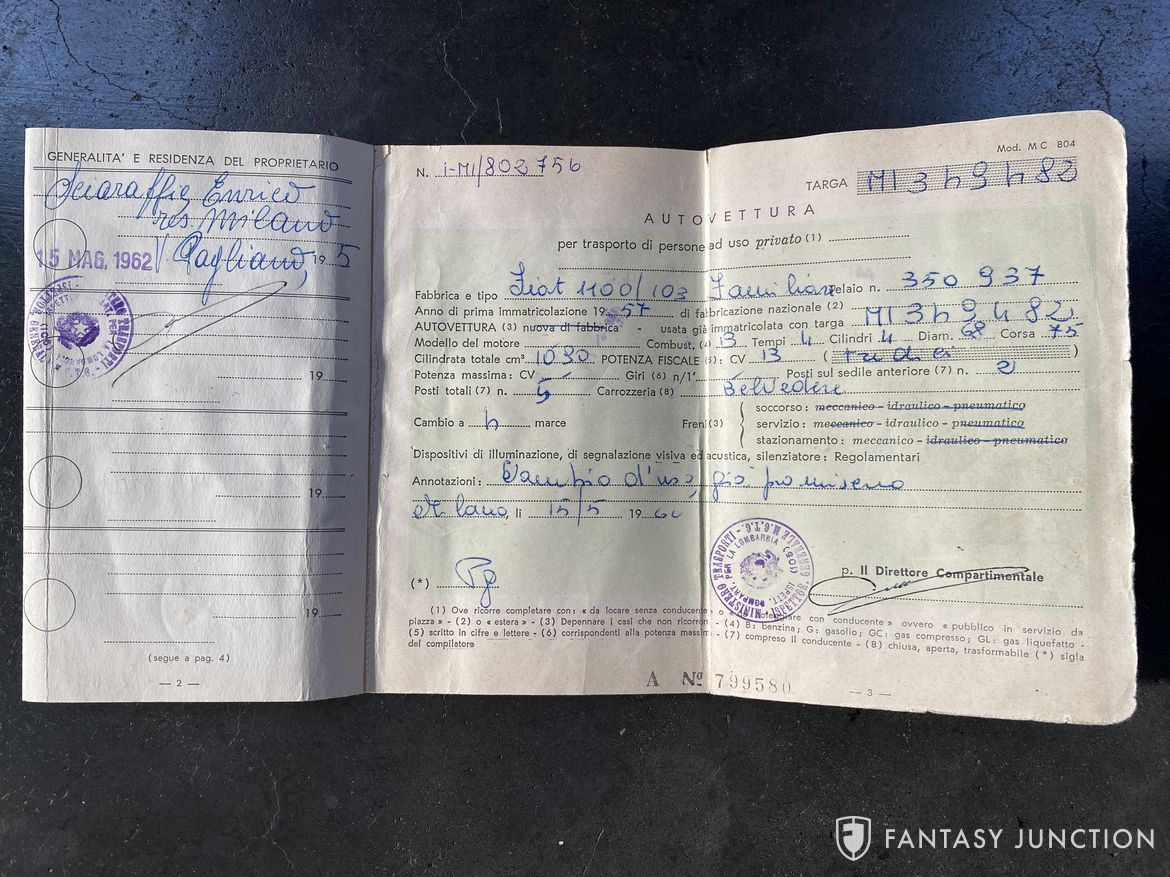 GENERALITA' E RESIDENZA DEL PROPRIETARIO
Sciaraffia Enrico
res. Milano
V. Gagliano, 5
19
15 MAG. 1962
19
19
19
(segue a pag. 4)
— 2 —
N. i-MI/802756
Mod. M C 804
TARGA MI 349482
AUTOVETTURA
per trasporto di persone ad uso privato (1)
Fabbrica e tipo Fiat 1100/103 Familiare Telaio n. 350937
Anno di prima immatricolazione 1957 di fabbricazione nazionale (2)
AUTOVETTURA (3) nuova di fabbrica - usata già immatricolata con targa MI 349482
Modello del motore Combust. (4) B Tempi 4 Cilindri 4 Diam. 68 Corsa 75
Cilindrata totale cm³ 1090 POTENZA FISCALE (5): CV 13 (tredici)
Potenza massima: CV Giri (6) n/1' Posti sul sedile anteriore (7) n. 2
Posti totali (7) n. 5 Carrozzeria (8) Belvedere
Cambio a 4 marce Freni (3)
soccorso: meccanico - idraulico - pneumatico
servizio: meccanico - idraulico - pneumatico
stazionamento: meccanico - idraulico - pneumatico
Dispositivi di illuminazione, di segnalazione visiva ed acustica, silenziatore: Regolamentari
Annotazioni: Cambio d'uso, già promiscuo
Milano, li 15/5 1962
MINISTERO TRASPORTI - ISPETTORATO GENERALE M.C.T.C.
ISPETT. COMPART. PER LA LOMBARDIA (105)
p. Il Direttore Compartimentale
(*)
(1) Ove ricorre completare con: « da locare senza conducente » o « da noleggiare con conducente » ovvero « pubblico in servizio da
piazza » - (2) o « estera » - (3) Depennare i casi che non ricorrono - (4) B: benzina; G: gasolio; GC: gas compresso; GL: gas liquefatto -
(5) scritto in cifre e lettere - (6) corrispondenti alla potenza massima - (7) compreso il conducente - (8) chiusa, aperta, trasformabile (*) sigla
del compilatore
A Nº 799580
— 3 —
FANTASY JUNCTION